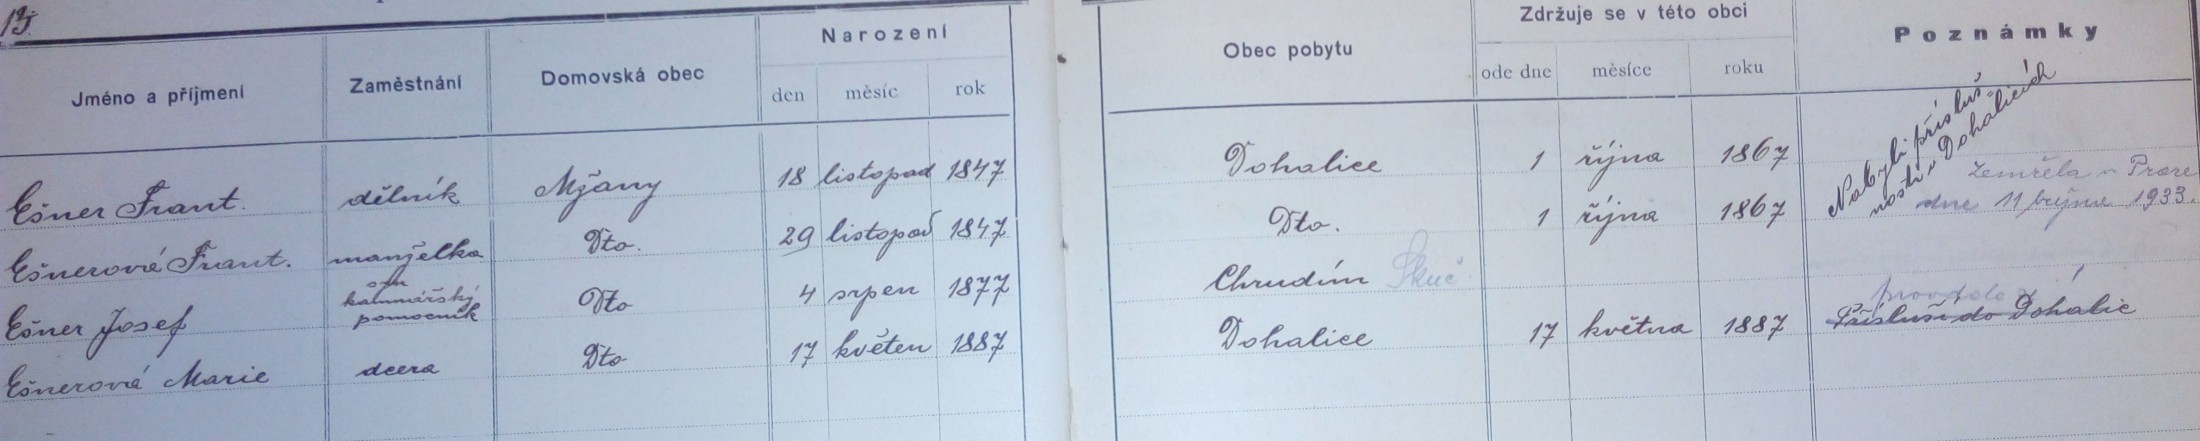 Narození
Jméno a příjmení Zaměstnání Domovská obec den měsíc rok
Zdržuje se v této obci
Obec pobytu ode dne měsíce roku Poznámky
Ešner Frant. dělník Mžany 18 listopad 1847 Dohalice 1 října 1867
Nabyli přísluš-
nosti v Dohalicích
Zemřela v Praze
dne 11 března 1933.
Ešnerová Frant. manželka Dto. 29 listopad 1847 Dto. 1 října 1867
syn
Ešner Josef pomocník Dto 4 srpen 1877 Chrudim Skuč
Ešnerová Marie dcera Dto 17 květen 1887 Dohalice 17 května 1887
Přísluší do Dohalic